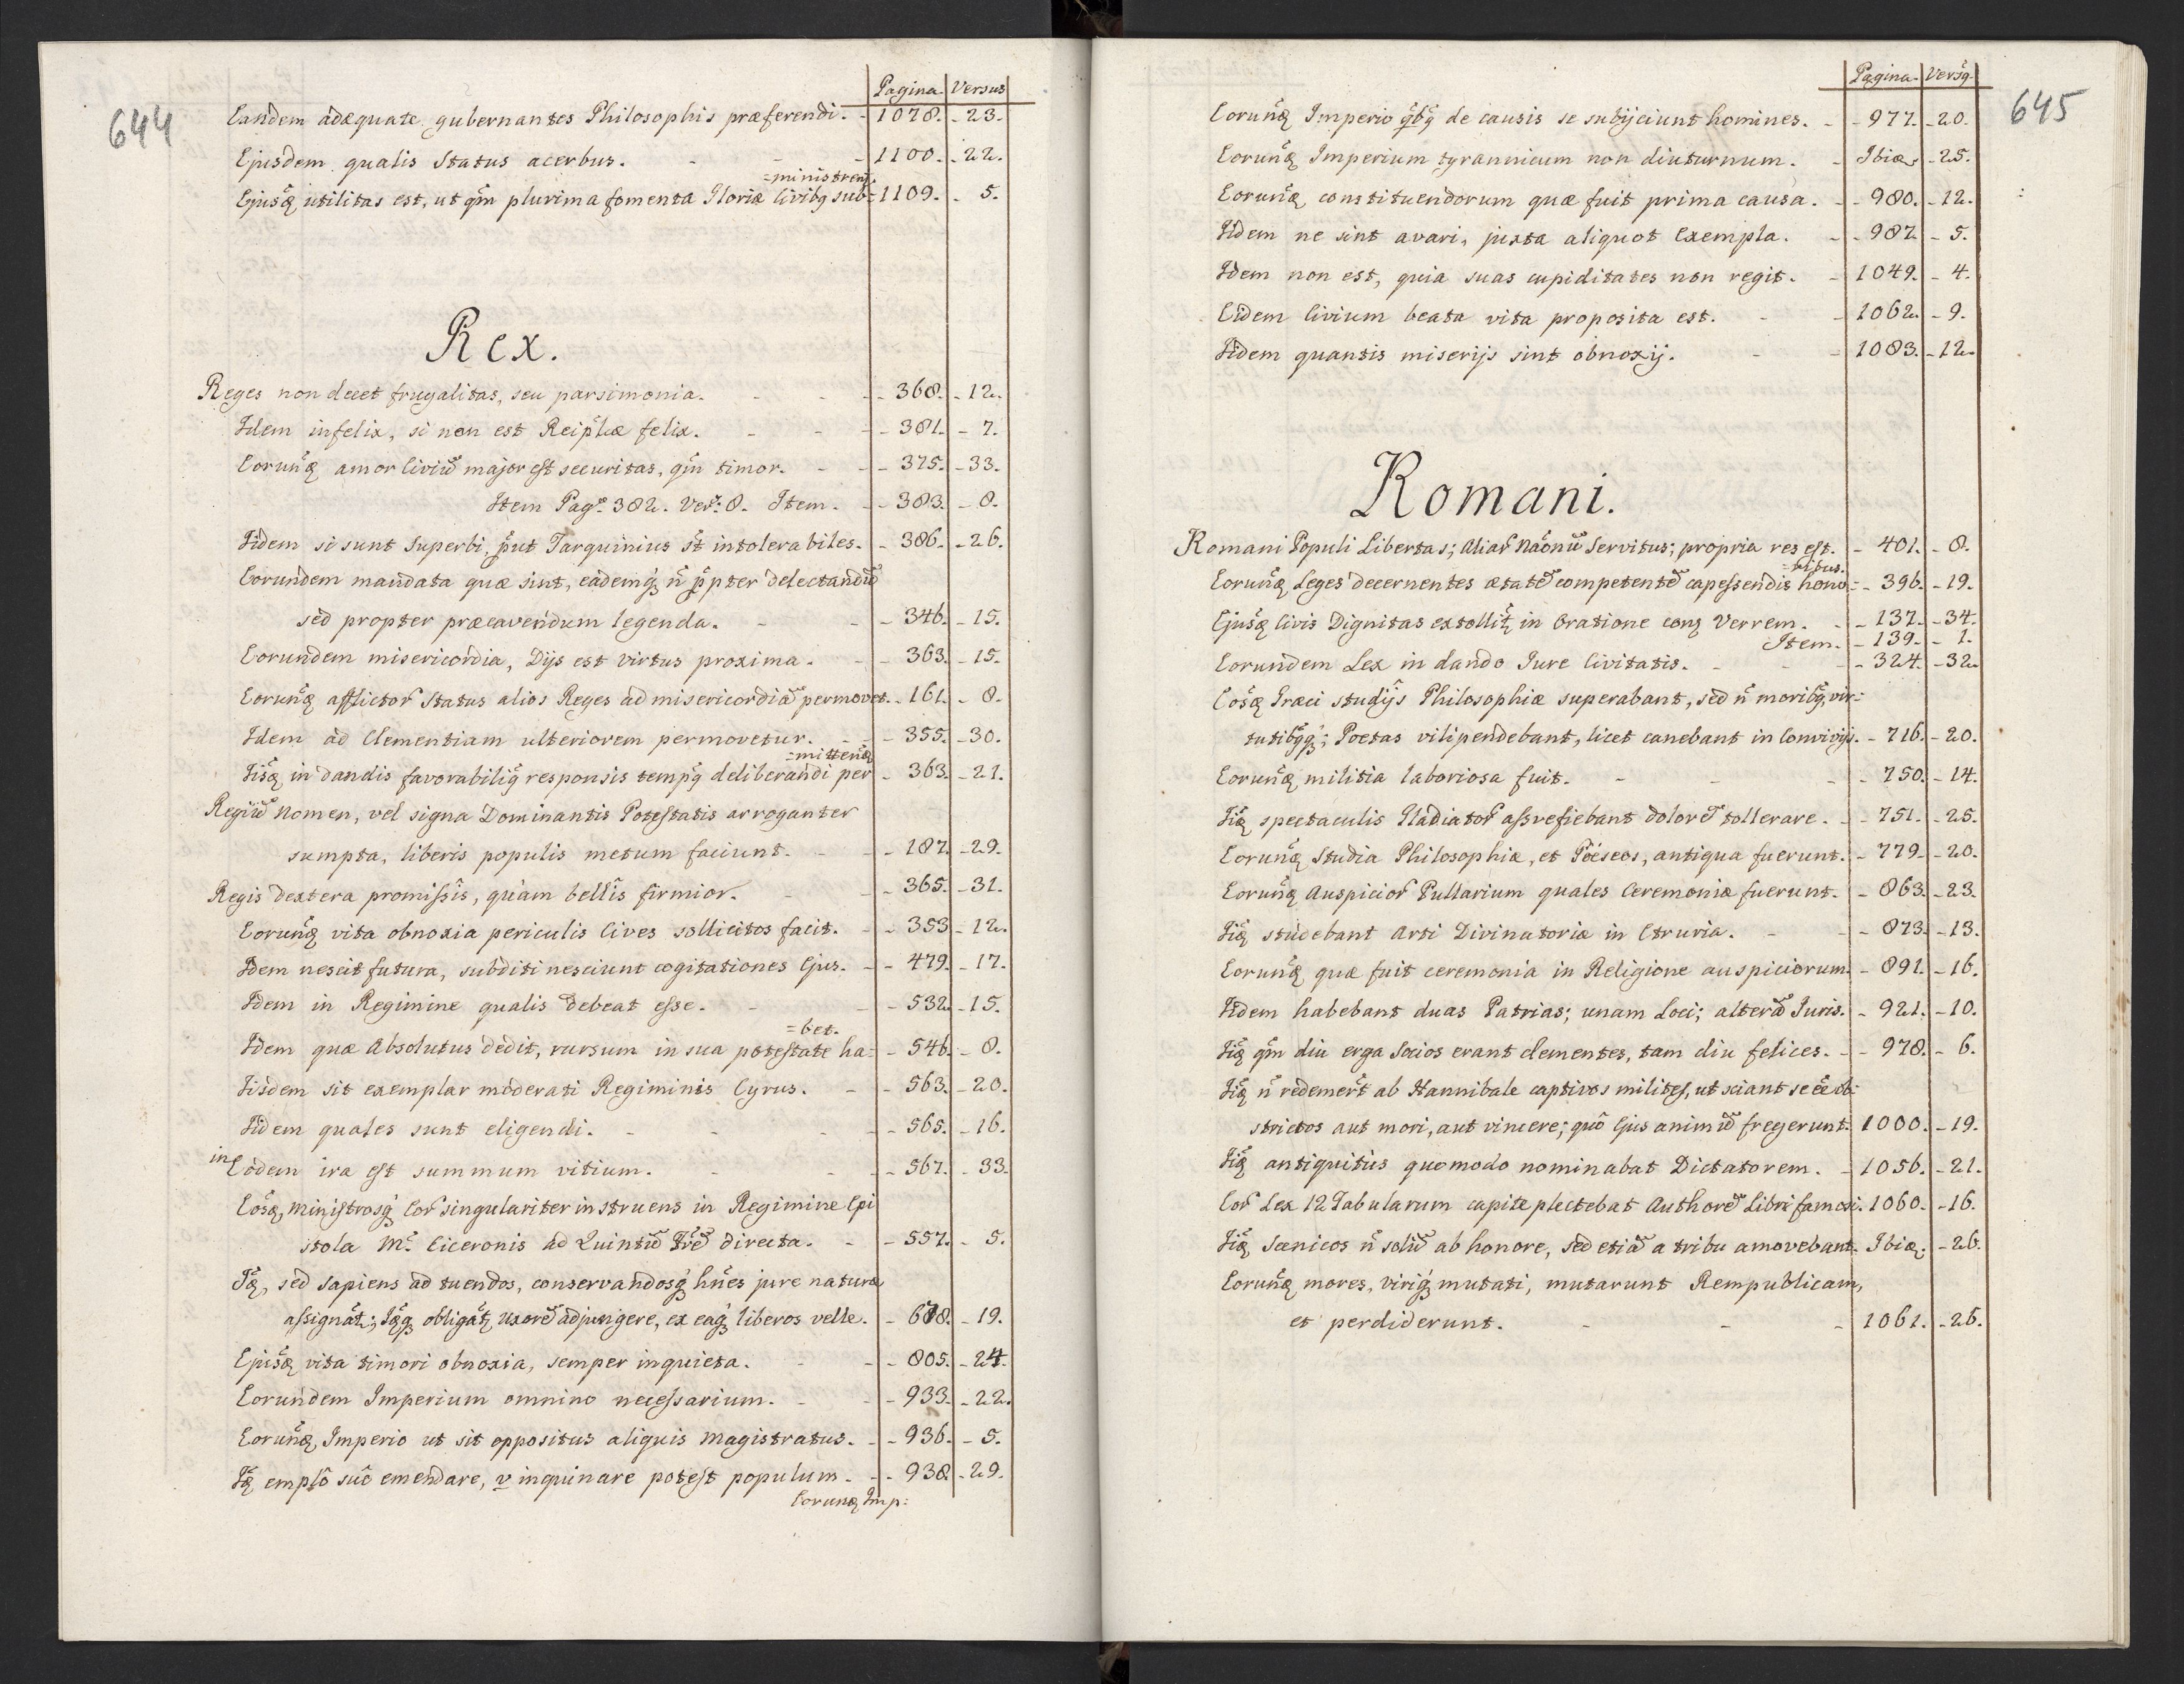 644
Pagina. Versus
Eandem adæquate gubernantes Philosophis præferendi. - 1078. - 23.
Ejusdem qualis Status acerbus. - - - 1100. - 22.
=ministrent.
Ejusq utilitas est, ut qm plurima fomenta Gloriæ Civibq sub= 1109. - 5.
Rex.
Reges non decet frugalitas, seu parsimonia. - - - 368. - 12.
Idem infelix, si non est Reiplicæ felix. - - - 381. - 7.
Eorunq amor Civiū major est securitas, qm timor. - - 375. - 33.
Item Pag. 382. Ver: 8. Item. - 383. - 8.
Iidem si sunt Superbi, put Tarquinius st intolerabiles. - 386. - 26.
Eorundem mandata quæ sint, eademq n ppter delectandū
sed propter præcavendum legenda. - - - 346. - 15.
Eorundem misericordia, Dijs est virtus proxima. - - 363. - 15.
Eorunq afflictor Status alios Reges ad misericordiā permovet. - 161. - 8.
Idem ad Clementiam ulteriorem permovetur. - - 355. - 30.
=mittend
Iisq in dandis favorabiliq responsis tempq deliberandi per - 363. - 21.
Regiū Nomen, vel signa Dominantis Potestatis arroganter
sumpta, liberis populis metum faciunt. - - 187. - 29.
Regis dextera promissis, quàm bellis firmior. - - 365. - 31.
Eorunq vita obnoxia periculis Cives sollicitos facit. - - 353 - 12.
Idem nescit futura, subditi nesciunt cogitationes Ejus. - - 479. - 17.
Idem in Regimine qualis debeat esse. - - - 532. - 15.
=bet.
Idem quæ Absolutus dedit, rursum in sua potestate ha= - 546. - 8.
Iisdem sit exemplar moderati Regiminis Cyrus. - - 563. - 20.
Iidem quales sunt eligendi. - - - - 565. - 16.
in Eodem ira est summum vitium. - - - 567. - 33.
Eosq, Ministrosq Eor singulariter instruens in Regimine Epi
stola M. Ciceronis ad Quintū Frē directa. - - 557. - 5.
Iq, sed sapiens ad tuendos, conservandosq hnes jure naturæ
assignat; Iqq obligat uxorē adjungere, ex eaq liberos velle. - 678. - 19.
Ejusq vita timori obnoxia, semper inquieta. - - 805. - 24.
Eorundem Imperium omnino necessarium. - - 933. - 22.
Eorunq Imperio ut sit oppositus aliquis Magistratus. - - 936. - 5.
Iq emplo suo emendare, v inquinare potest populum. - - 938. - 29.
Eorunq Imp:
645
Pagina. Versq.
Eorunq Imperio qbq de causis se subijciunt homines. - - 977. - 20.
Eorunq Imperium tyrannicum non diuturnum. - Ibiq. - 25.
Eorunq constituendorum quæ fuit prima causa. - - 980. - 12.
Iidem ne sint avari, juxta aliquot Exempla. - - 987. - 5.
Idem non est, quia suas cupiditates non regit. - 1049. - 4.
Eidem Civium beata vita proposita est. - - 1062. - 9.
Iidem quantis miserijs sint obnoxij. - - 1083. - 12.
Romani.
Romani Populi Libertas; Aliar Naonū Servitus; propria res est. - 401. - 8.
=ribus.
Eorunq Leges decernentes ætatē competentē capessendis hono= - 396. - 19.
Ejusq Civis Dignitas extollit in Oratione conq Verrem. - - 137. - 34.
Item. - 139. - 1.
Eorundem Lex in dando Jure Civitatis. - - - 324. - 32.
Eosq Græci studijs Philosophiæ superabant, sed n moribq, vir=
tutibqq; Poetas vilipendebant, licet canebant in Convivijs. - 716. - 20.
Eorunq militia laboriosa fuit. - - - 750. - 14.
Iiq spectaculis Gladiator assvefiebant dolorē tollerare. - - 751. - 25.
Eorunq Studia Philosophiæ, et Pöéseos, antiqua fuerunt. - 779. - 20.
Eorunq Auspicior Pullarium quales Ceremoniæ fuerunt. - 863. - 23.
Iiq studebant Arti Divinatoriæ in Etruria. - - 873. - 13.
Eorunq quæ fuit ceremonia in Religione auspiciorum. - 891. - 16.
Iidem habebant duas Patrias; unam Loci; alterā Juris. - 921. - 10.
Iiq qm diu erga Socios erant clementes, tam diu felices. - - 978. - 6.
Iiq n redemert ab Hannibale captivos milites, ut sciant se ee ob=
strictos aut mori, aut vincere; quo Ejus animū fregerunt. 1000. - 19.
Iiq antiquitùs quomodo nominabat Dictatorem. - 1056. - 21.
Eor Lex 12 Tabularum capite plectebat Authorē Libri famosi. 1060. - 16.
Iiq Scenicos n solū ab honore, sed etiā a tribu amovebant. Ibiq. - 26.
Eorunq mores, viriq mutati, mutarunt Rempublicam,
et perdiderunt. - - - 1061. - 26.